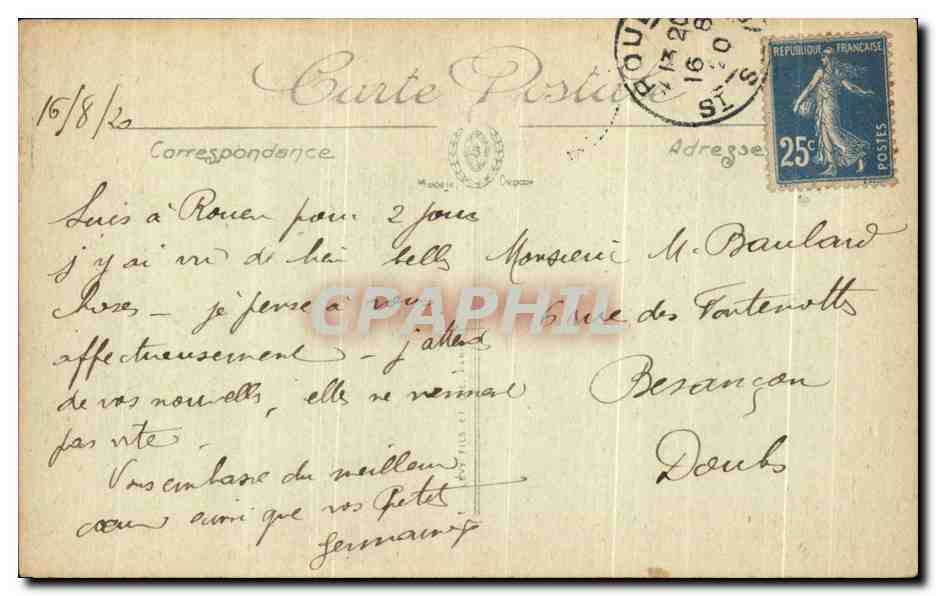 Carte Postale
ROUEN
13 20
16 - 8
20
ST S
REPUBLIQUE FRANÇAISE
25c
POSTES
16/8/20
Correspondance
Adresse
Suis à Rouen pour 2 jours
j'y ai vu de bien belles
choses - je pense à vous
affectueusement - j'attend
de vos nouvelles, elles ne viennent
pas vite -
Vous embrasse du meilleur
coeur ainsi que vos Petit
Germaine
Monsieur M. Baulard
6 rue des Fontenottes
Besançon
Doubs
CPAPHIL